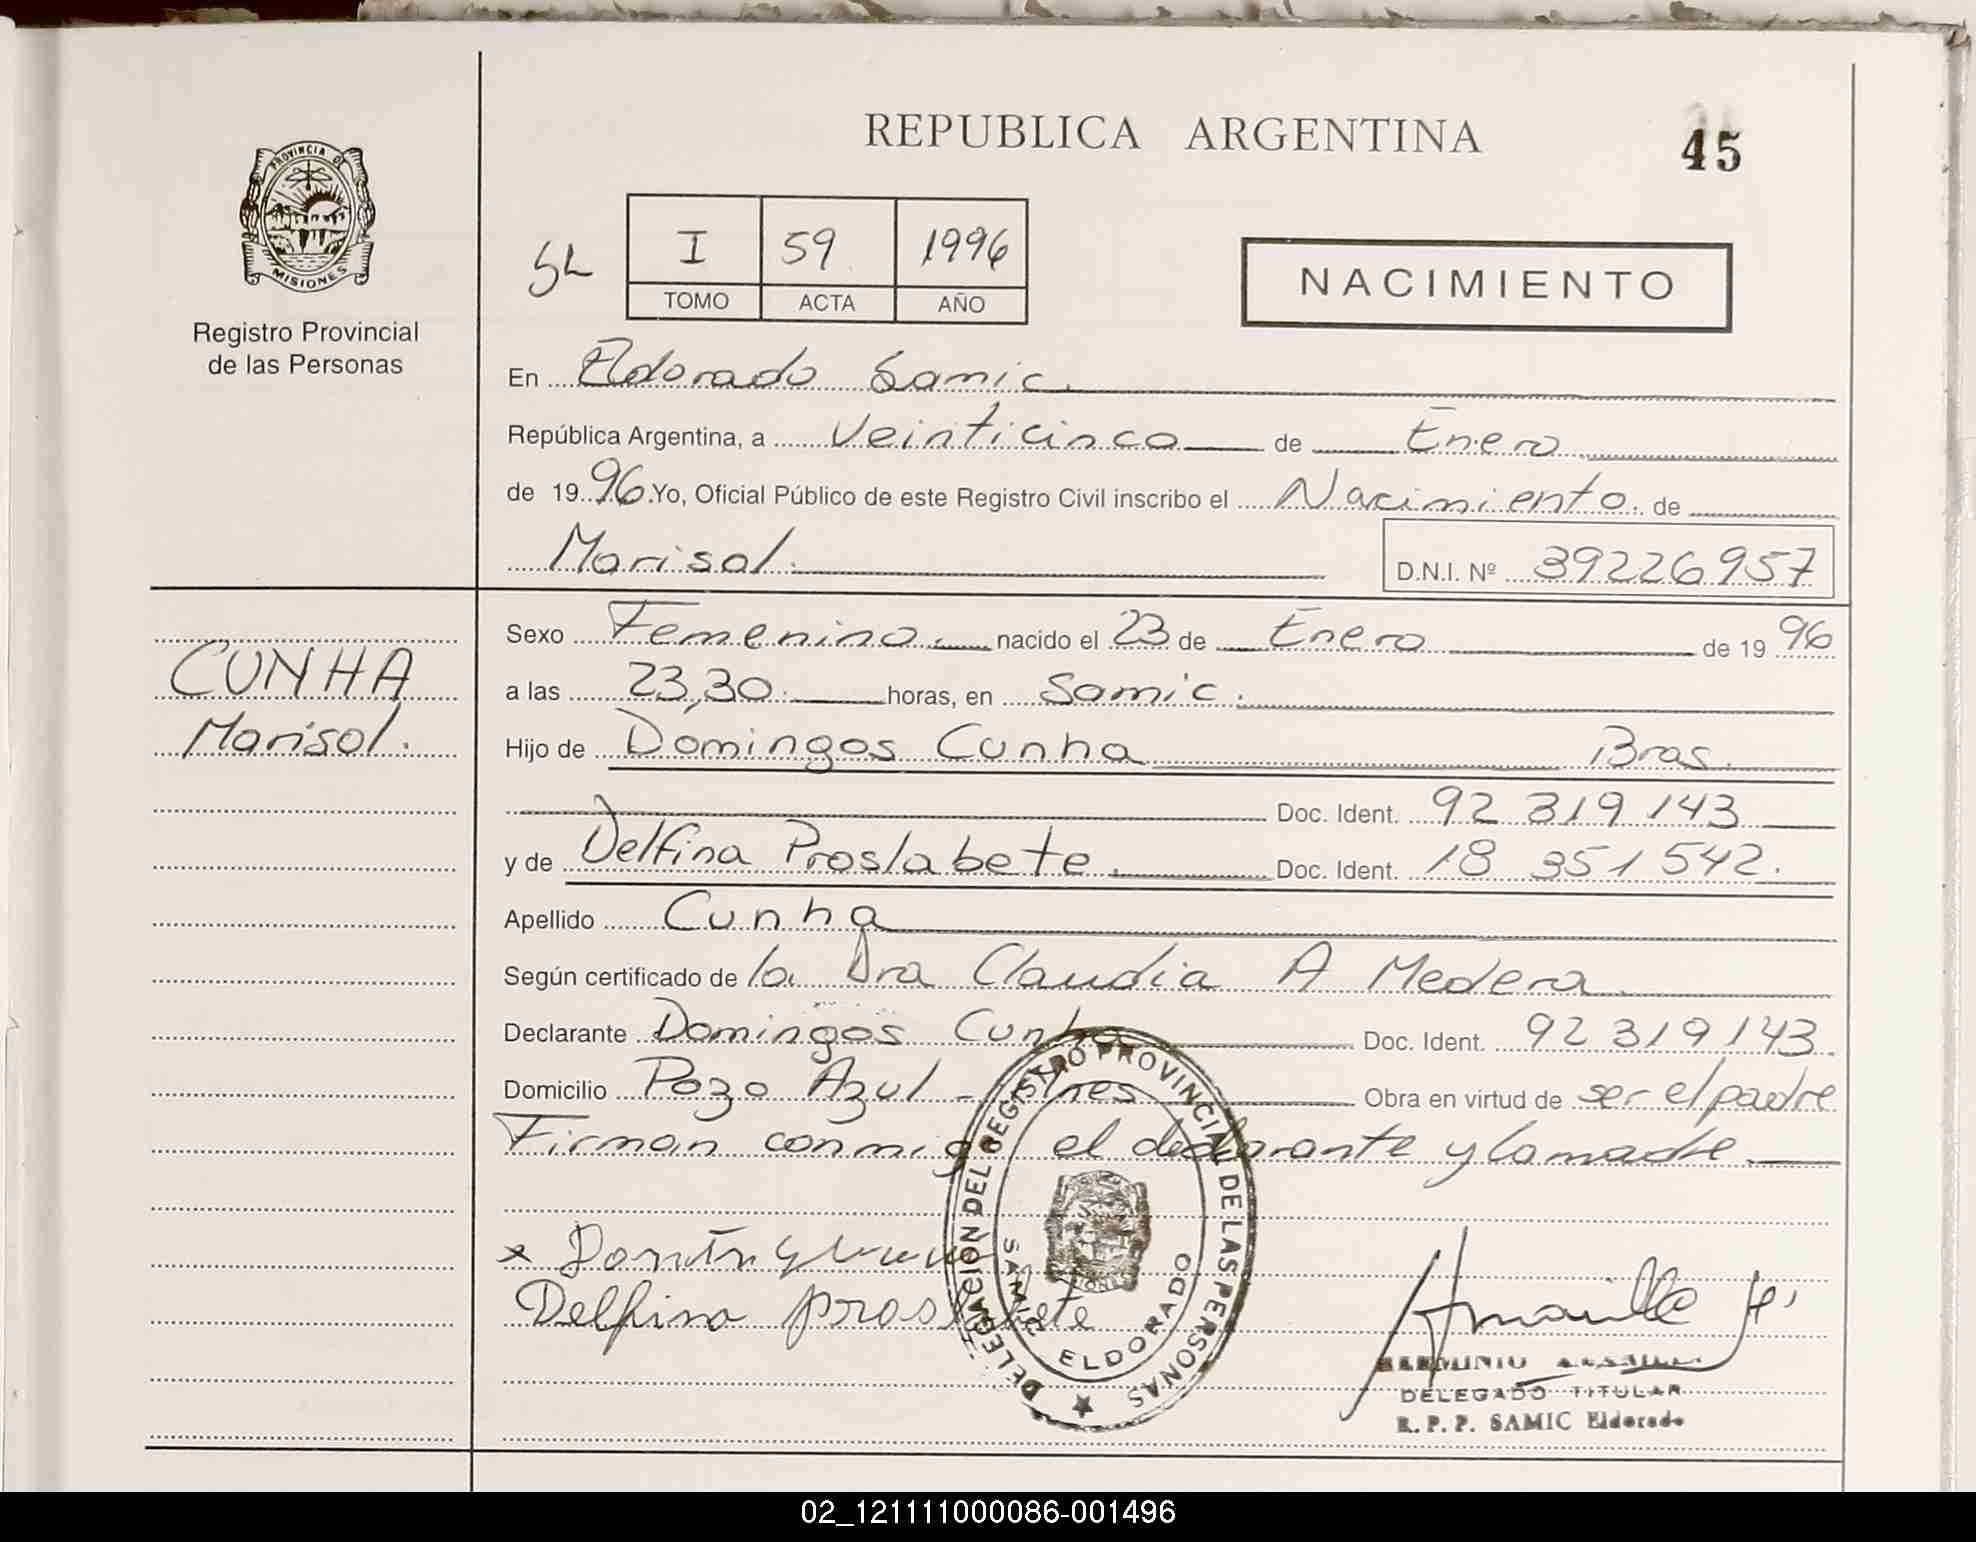 REPUBLICA ARGENTINA
45
PROVINCIA DE
MISIONES
Registro Provincial
de las Personas
I 59 1996
TOMO ACTA AÑO
NACIMIENTO
En Eldorado Samic.
República Argentina, a Veinticinco de Enero
de 1996 Yo, Oficial Público de este Registro Civil inscribo el Nacimiento de
Marisol. D.N.I. Nº 39226957
CUNHA
Marisol.
Sexo Femenino. nacido el 23 de Enero de 1996
a las 23,30. horas, en Samic.
Hijo de Domingos Cunha Bras.
Doc. Ident. 92 319 143
y de Delfina Proslabete. Doc. Ident. 18 351 542.
Apellido Cunha
Según certificado de la Dra Claudia A Medera
Declarante Domingos Cunha Doc. Ident. 92 319 143
Domicilio Pozo Azul - Mnes Obra en virtud de ser el padre
Firman conmigo el declarante y la madre
DELEGACION DEL REGISTRO PROVINCIAL DE LAS PERSONAS
SAMIC ELDORADO
Delfina proslabete
HERMINIO
DELEGADO TITULAR
R. P. P. SAMIC Eldorado
02_121111000086-001496